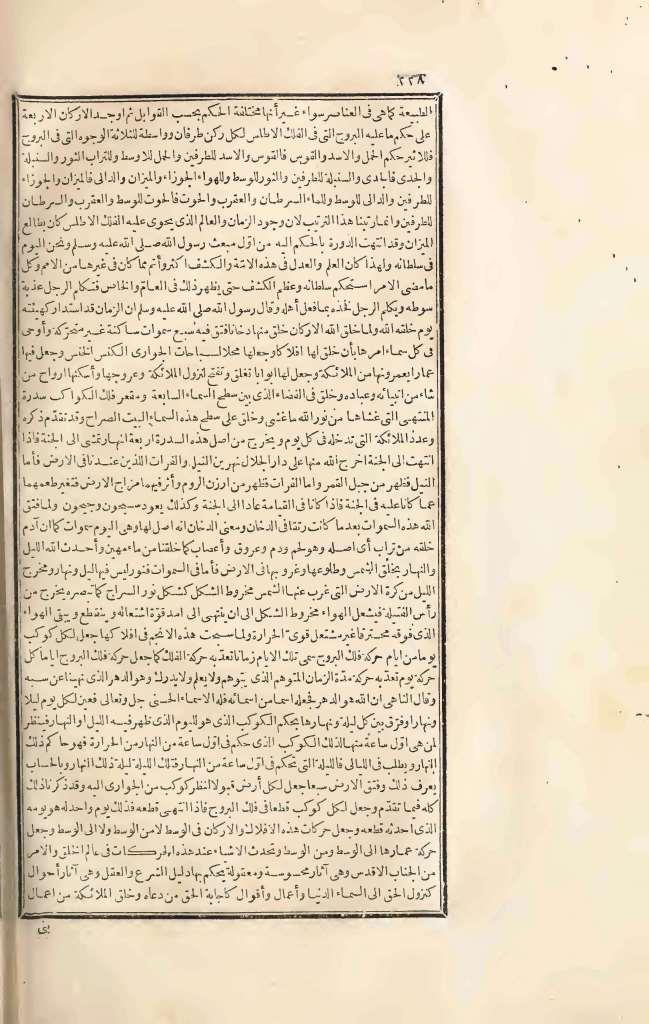 ٣٣٨
الطبيعة كما هى فى العناصر سواء غير أنها مختلفة الحكم بحسب القوابل ثم أوجد الاركان الاربعة
على حكم ما عليه البروج التى فى الفلك الاطلس لكل ركن طرفان وواسطة للثلاثة الوجوه التى فى البروج
فللاثير حكم الحمل والاسد والقوس فالقوس والاسد للطرفين والحمل للاوسط وللتراب الثور والسنبلة
والجدى فالجدى والسنبلة للطرفين والثور للوسط وللهواء الجوزاء والميزان والدالى فالميزان والجوزاء
للطرفين والدالى للوسط وللماء السرطان والعقرب والحوت فالحوت للوسط والعقرب والسرطان
للطرفين وانما رتبنا هذا الترتيب لان وجود الزمان والعالم الذى يحوى عليه الفلك الاطلس كان بطالع
الميزان وقد انتهت الدورة بالحكم اليه من أول مبعث رسول الله صلى الله عليه وسلم ونحن اليوم
فى سلطانه ولهذا كان العلم والعدل فى هذه الامة والكشف أكثر وأتم مما كان فى غيرها من الامم وكل
ما مضى الامر استحكم سلطانه وعظم الكشف حتى يظهر ذلك فى العام والخاص فتكلم الرجل عذبة
سوطه ويكلم الرجل فخذه بما فعل أهله وقال رسول الله صلى الله عليه وسلم ان الزمان قد استدار كهيئته
يوم خلقه الله ولما خلق الله الاركان خلق منها دخانا فتق فيه سبع سموات ساكنة غير متحركة وأوحى
فى كل سماء أمرها بأن خلق لها أفلاكا وجعلها محلا لسباحات الجوارى الكنس الخنس وجعل فيها
عمارا يعمرونها من الملائكة وجعل لها أبوابا تغلق وتفتح لنزول الملائكة وعروجها وأسكنها أرواح من
شاء من أنبيائه وعباده وخلق فى الفضاء الذى بين سطح السماء السابعة ومقعر فلك الكواكب سدرة
المنتهى التى غشاها من نور الله ما غشى وخلق على سطح هذه السماء البيت الصراح وقد تقدم ذكره
وعدد الملائكة التى تدخله فى كل يوم ويخرج من أصل هذه السدرة أربعة أنهار تمشى الى الجنة فاذا
انتهت الى الجنة أخرج الله منها على دار الجلال نهرين النيل والفرات اللذين عندنا فى الارض فأما
النيل فظهر من جبل القمر وأما الفرات فظهر من أرزن الروم وأثر فيهما مزاج الارض فتغير طعمهما
عما كانا عليه فى الجنة فاذا كانا فى القيامة عادا الى الجنة وكذلك يعود سيحون وجيحون ولما فتق
الله هذه السموات بعد ما كانت رتقا فى الدخان ومعنى الدخان انه أصل لها وهى اليوم سموات كما ان آدم
خلقه من تراب أى أصله وهو لحم ودم وعروق وأعصاب كما خلقنا من ماء مهين وأحدث الله الليل
والنهار بخلق الشمس وطلوعها وغروبها فى الارض فأما فى السموات فنور ليس فيها ليل ونهار ومخرج
الليل من كرة الارض التى غرب عنها الشمس مخروط الشكل كشكل نور السراج كما تبصره يخرج من
رأس الفتيلة فيشعل الهواء مخروط الشكل الى ان ينتهى الى أمد قوة اشتعاله وينقطع ويبقى الهواء
الذى فوقه محسترقا غير مشتعل قوى الحرارة ولما سبحت هذه الانجم فى أفلاكها جعل لكل كوكب
يوما من أيام حركة فلك البروج سمى تلك الايام زمانا تعد به حركة الفلك كما جعل حركة فلك البروج أياما كل
حركة يوم تعد به حركة مدة الزمان المتوهم الذى يتوهم ولا يعلم ولا يدرك وهو الدهر الذى نهينا عن سبه
وقال الناهى ان الله هو الدهر فجعله اسما من أسمائه فله الاسماء الحسنى جل وتعالى فعين لكل يوم ليلا
ونهارا وفرق بين كل ليلة ونهارها بحكم الكوكب الذى هو لليوم الذى ظهر فيه الليل أو النهار فينظر
لمن هى أول ساعة منها لذلك الكوكب الذى حكم فى أول ساعة من النهار من الحرارة فهو حاكم ذلك
النهار ويطلب فى الليالى فالليلة التى يحكم فى أول ساعة من النهار فتلك الليلة ليلة ذلك النهار وبالحساب
يعرف ذلك وفتق الارض سبعا جعل لكل أرض قبولا لنظر كوكب من الجوارى اليه وقد ذكرنا ذلك
كله فيما تقدم وجعل لكل كوكب قطعا فى فلك البروج فاذا انتهى قطعه فذلك يوم واحد له هو يومه
الذى أحدثه قطعه وجعل حركات هذه الافلاك والاركان فى الوسط لا من الوسط ولا الى الوسط وجعل
حركة عمارها الى الوسط ومن الوسط وتحدث الاشياء عند هذه الحركات فى عالم الخلق والامر
من الجناب الاقدس وهى آثار محسوسة ومعقولة يحكم بها دليل الشرع والعقل وهى آثار أحوال
كنزول الحق الى السماء الدنيا وأعمال وأقوال كاجابة الحق من دعاه وخلق الملائكة من أعمال
بنى